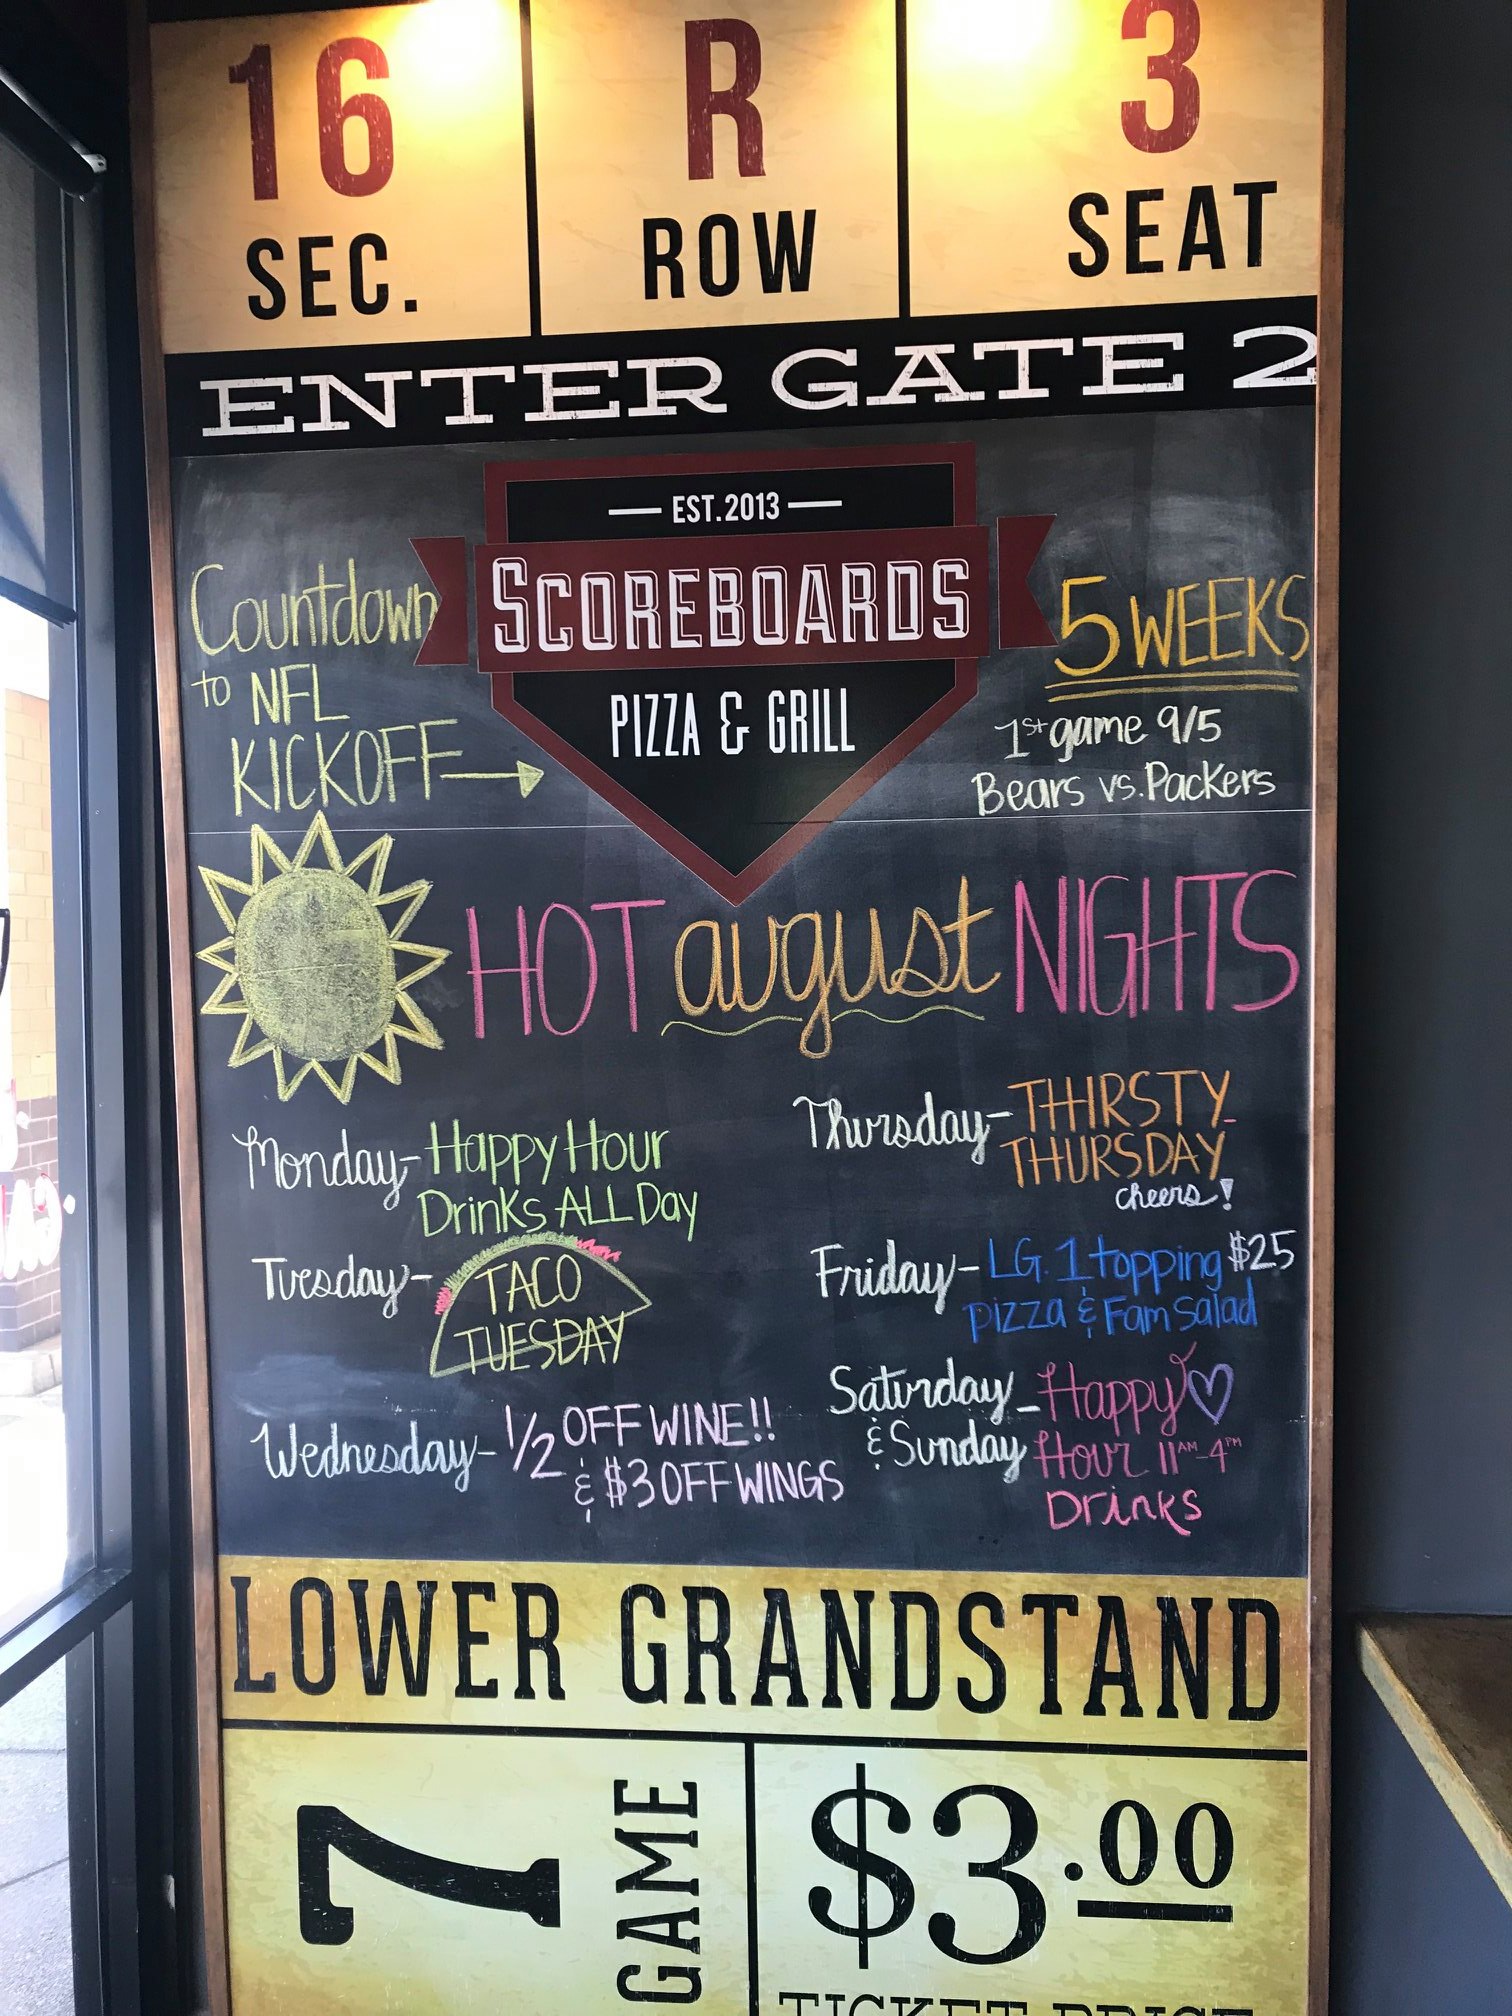 16 R 3
SEC. ROW SEAT
ENTER GATE 2
EST. 2013
SCOREBOARDS
PIZZA & GRILL
Countdown
to NFL
KICKOFF
5 WEEKS
1st game 9/5
Bears vs. Packers
HOT august NIGHTS
Monday - Happy Hour
Drinks ALL Day
Tuesday - TACO
TUESDAY
Wednesday - 1/2 OFF WINE!!
& $3 OFF WINGS
Thursday - THIRSTY
THURSDAY
cheers!
Friday - LG. 1 topping $25
pizza & Fam salad
Saturday - Happy
& Sunday Hour 11AM-4PM
Drinks
LOWER GRANDSTAND
7
GAME
$3.00
TICKET PRICE